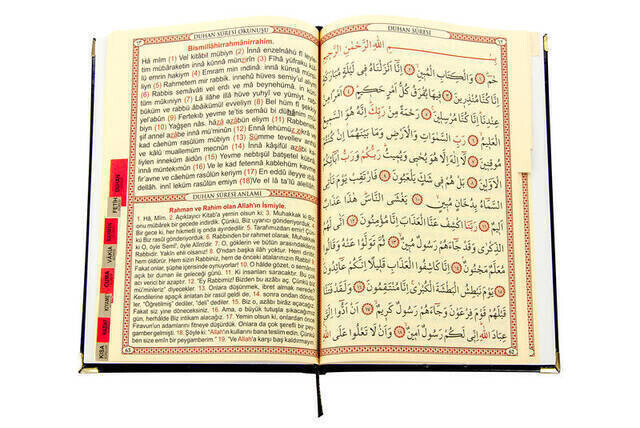 DUHAN SÛRESİ OKUNUŞU
Bismillâhirrahmânirrahîm.
Hâ mîm (1) Vel kitâbil mübîn (2) İnnâ enzelnâhü fî ley
tim mübâraketin innâ künnâ münzirîn (3) Fîhâ yüfraku kü
lü emrin hakîym (4) Emram min ındinâ. innâ künnâ mürsi
lîn (5) Rahmetem mir rabbik. innehû hüves semîy'ul alîym
(6) Rabbis semâvâti vel erdı ve mâ beynehümâ. in kün
tüm mûkıniyn (7) Lâ ilâhe illâ hüve yuhyî ve yümît. rab
büküm ve rabbü âbâikümül evveliyn (8) Bel hüm fî şekkiy
yel'abûn (9) Fertekıb yevme te'tis semâü bi dühânim mü
biyn (10) Yağşen nâs. hâzâ azâbün eliym (11) Rabbenek
şif annel azâbe innâ mü'minûn (12) Ennâ lehümüz zikrâ ve
kad câehüm rasûlüm mübiyn (13) Sümme tevellev anhü
ve kâlû muallemüm mecnûn (14) İnnâ kâşifül azâbi ka
liylen inneküm âidûn (15) Yevme nebtışül batşetel kübrâ
innâ müntekımûn (16) Ve le kad fetennâ kablehüm kavme
fir'avne ve câehüm rasûlün keriym (17) En eddû ileyye ıbâ
dellâh. innî leküm rasûlün emiyn (18) Ve el lâ ta'lû alellâh
DUHAN SÛRESİ ANLAMI
Rahman ve Rahim olan Allah'ın İsmiyle.
1. Hâ, Mîm. 2. Apaçık Kitab'a yemin olsun ki; 3. Muhakkak ki Biz
onu mübarek bir gecede indirdik. Çünkü, Biz uyarıcı gönderiyorduk. 4.
Bir gece ki, her hikmetli iş onda ayırdedilir. 5. Tarafımızdan emir! Çün
kü Biz rasûl gönderiyorduk. 6. Rabbinden bir rahmet olarak. Muhakkak
ki O, öyle Semî', öyle Alîm'dir. 7. O, göklerin ve bütün arasındakilerin
Rabbidir. Yakîn ehli olsanız! 8. O'ndan başka ilâh yoktur. Hem diriltir,
hem öldürür. Hem sizin Rabbiniz, hem de önceki atalarınızın Rabbi! 9.
Fakat onlar, şüphe içerisinde oynuyorlar! 10. O hâlde gözet, o semânın
açık bir duman ile geleceği günü. 11. Ki insanları saracaktır. Bu pek
acı verici bir azaptır. 12. "Ey Rabbimiz! Bizden bu azâbı aç. Çünkü biz
mü'minleriz" diyecekler. 13. Onlara düşünmek, ibret almak nerede!
Kendilerine apaçık anlatan bir rasûl geldi de, 14. sonra ondan döndü
ler. "Öğretilmiş" dediler, "deli" dediler. 15. Biz o, azâbı biraz açacağız.
Fakat siz yine döneceksiniz. 16. Ama, o büyük tutuşla sıkacağımız
gün, herhâlde Biz intikam alacağız! 17. Yemin olsun ki, onlardan önce
Firavun'un adamlarını fitneye düşürdük. Onlara da çok şerefli bir pey
gamber gelmişti. 18. Şöyle ki; "Allah'ın kullarını bana teslim edin. Çünkü
ben size emin bir peygamberim." 19. "Ve Allah'a karşı baş kaldırmayın
43
FETİH DUHAN
VAKIA
CUMA
KIYAME
KISA
DUHAN SÛRESİ
بِسْمِ اللّٰهِ الرَّحْمٰنِ الرَّحِيمِ
حٰمٓ ﴿١﴾ وَالْكِتَابِ الْمُبِينِ ﴿٢﴾ اِنَّٓا اَنْزَلْنَاهُ فِي لَيْلَةٍ مُبَارَكَةٍ
اِنَّا كُنَّا مُنْذِرِينَ ﴿٣﴾ فِيهَا يُفْرَقُ كُلُّ اَمْرٍ حَكِيمٍ ﴿٤﴾ اَمْرًا مِنْ
عِنْدِنَا اِنَّا كُنَّا مُرْسِلِينَ ﴿٥﴾ رَحْمَةً مِنْ رَبِّكَ اِنَّهُ هُوَ السَّمِيعُ
الْعَلِيمُ ﴿٦﴾ رَبِّ السَّمٰوَاتِ وَالْاَرْضِ وَمَا بَيْنَهُمَا اِنْ كُنْتُمْ
مُوقِنِينَ ﴿٧﴾ لَٓا اِلٰهَ اِلَّا هُوَ يُحْيِي وَيُمِيتُ رَبُّكُمْ وَرَبُّ اٰبَٓائِكُمُ
الْاَوَّلِينَ ﴿٨﴾ بَلْ هُمْ فِي شَكٍّ يَلْعَبُونَ ﴿٩﴾ فَارْتَقِبْ يَوْمَ تَأْتِي
السَّمَٓاءُ بِدُخَانٍ مُبِينٍ ﴿١٠﴾ يَغْشَى النَّاسَ هٰذَا عَذَابٌ
اَلِيمٌ ﴿١١﴾ رَبَّنَا اكْشِفْ عَنَّا الْعَذَابَ اِنَّا مُؤْمِنُونَ ﴿١٢﴾ اَنّٰى لَهُمُ
الذِّكْرٰى وَقَدْ جَٓاءَهُمْ رَسُولٌ مُبِينٌ ﴿١٣﴾ ثُمَّ تَوَلَّوْا عَنْهُ وَقَالُوا
مُعَلَّمٌ مَجْنُونٌ ﴿١٤﴾ اِنَّا كَاشِفُوا الْعَذَابِ قَلِيلًا اِنَّكُمْ عَٓائِدُونَ
﴿١٥﴾ يَوْمَ نَبْطِشُ الْبَطْشَةَ الْكُبْرٰى اِنَّا مُنْتَقِمُونَ ﴿١٦﴾ وَلَقَدْ فَتَنَّا
قَبْلَهُمْ قَوْمَ فِرْعَوْنَ وَجَٓاءَهُمْ رَسُولٌ كَرِيمٌ ﴿١٧﴾ اَنْ اَدُّٓوا اِلَيَّ
عِبَادَ اللّٰهِ اِنِّي لَكُمْ رَسُولٌ اَمِينٌ ﴿١٨﴾ وَاَنْ لَا تَعْلُوا عَلَى اللّٰهِ
42